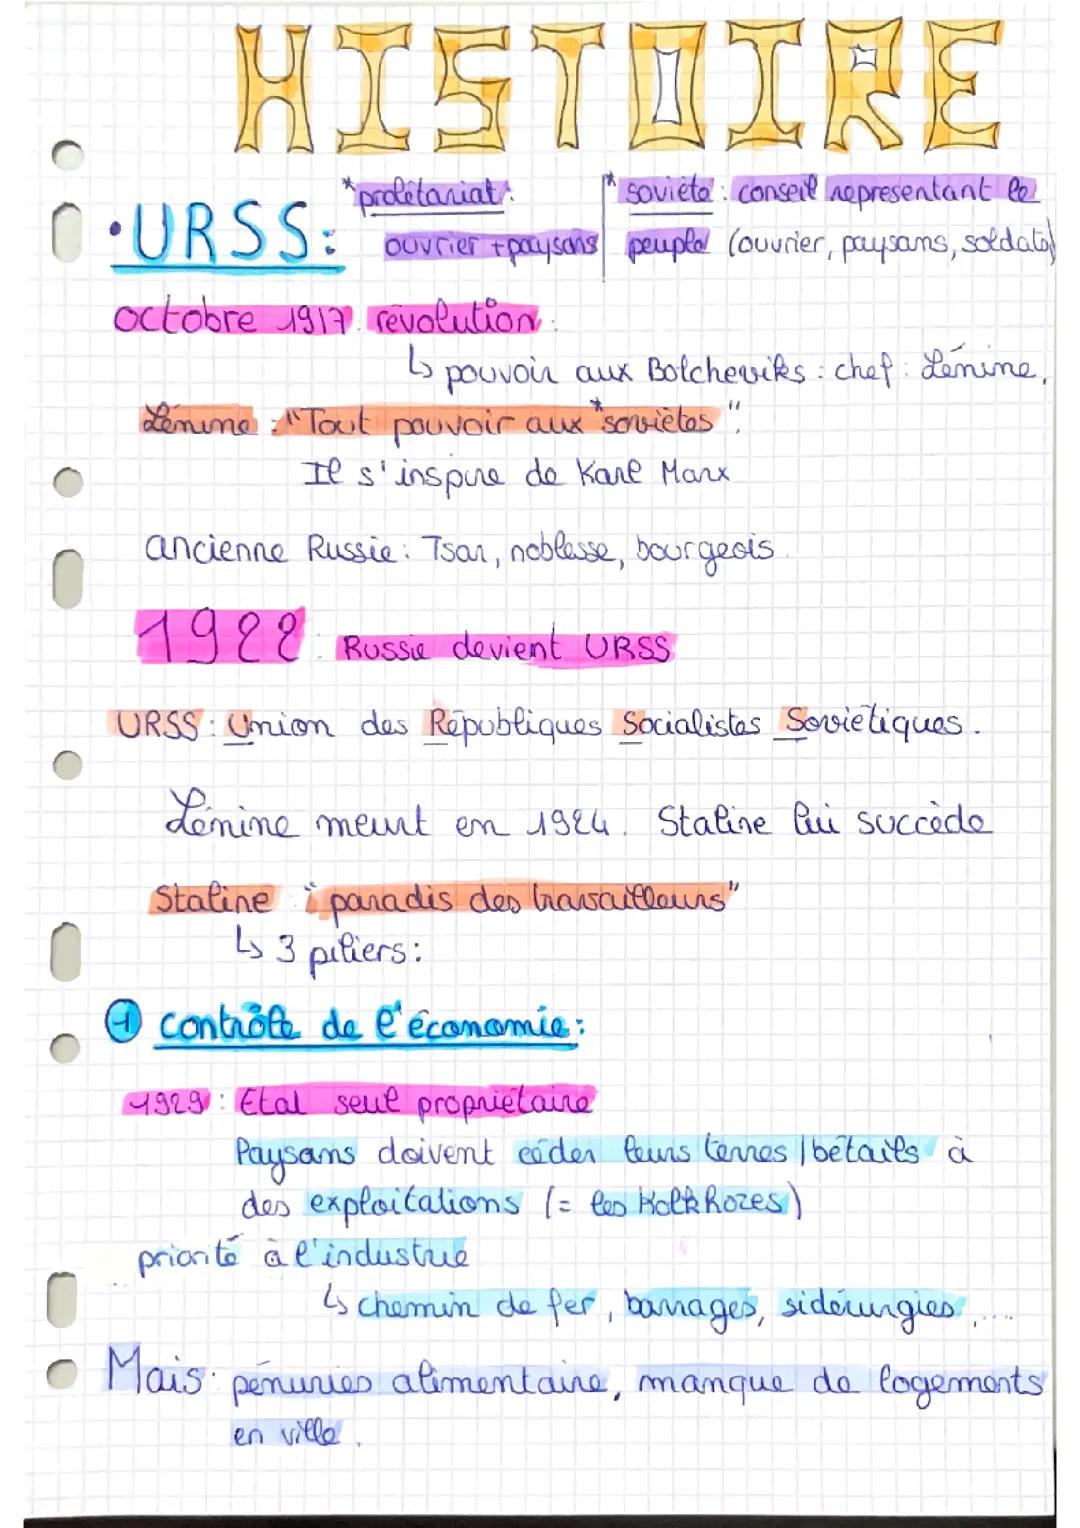 HISTOIRE
*prolétariat: | * soviéte : conseil représentant le
•URSS: ouvrier + paysans | peuple (ouvrier, paysans, soldats)
octobre 1917 : révolution :
↳ pouvoir aux Bolcheviks : chef : Lénine.
Lénine : "Tout pouvoir aux *soviètes".
Il s'inspire de Karl Marx
ancienne Russie : Tsar, noblesse, bourgeois.
1922 : Russie devient URSS
URSS : Union des Républiques Socialistes Soviétiques.
Lénine meurt en 1924. Staline lui succède
Staline : "paradis des travailleurs"
↳ 3 piliers :
1 contrôle de l'économie :
1929 : Etat seul propriétaire
Paysans doivent céder leurs terres / bétails à
des exploitations (= les Kolkhozes)
priorité à l'industrie
↳ chemin de fer, barrages, sidérurgies, ....
Mais : pénuries alimentaire, manque de logements
en ville.